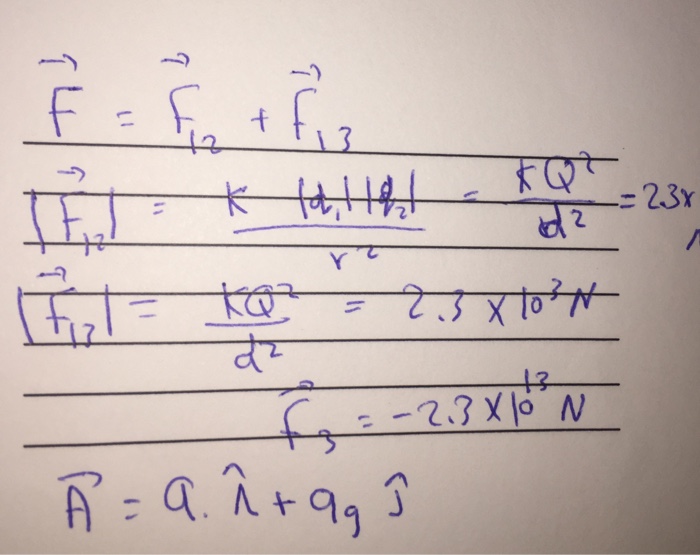 F⃗ = F⃗₁₂ + F⃗₁₃
|F⃗₁₂| = K |q₁| |q₂| / r² = KQ² / d² = 2.3x
|F⃗₁₃| = KQ² / d² = 2.3 x 10³ N
F⃗₃ = -2.3 x 10¹³ N
A⃗ = a. î + a ĵ